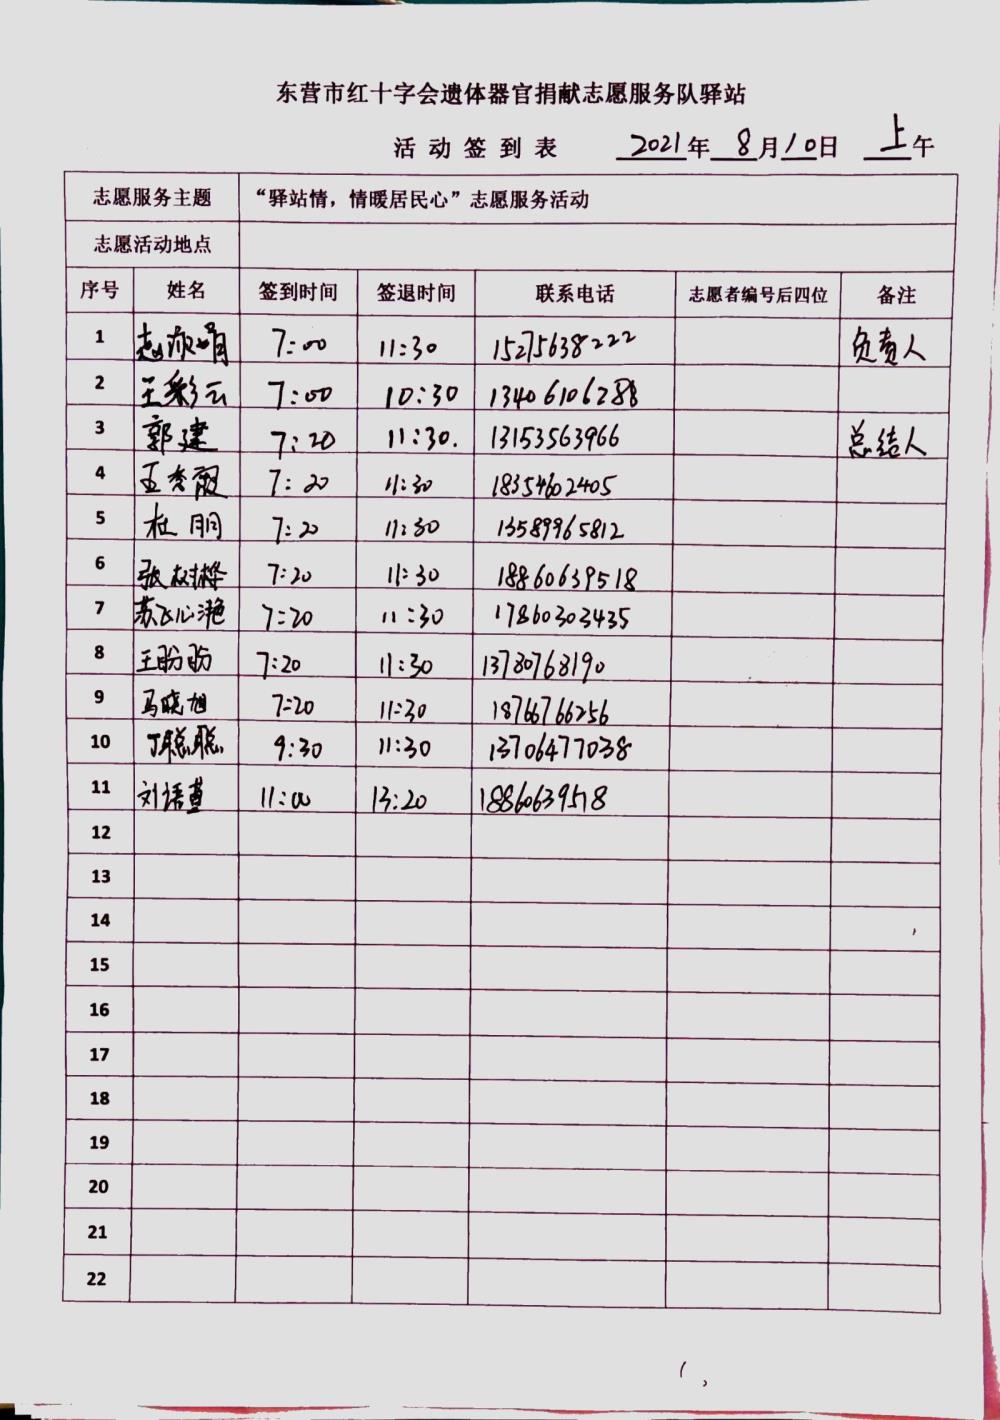 东营市红十字会遗体器官捐献志愿服务队驿站
活动签到表 2021年 8月10日 上午
志愿服务主题 “驿站情，情暖居民心”志愿服务活动
志愿活动地点
序号 姓名 签到时间 签退时间 联系电话 志愿者编号后四位 备注
1 赵淑娟 7:00 11:30 15275638222 负责人
2 王彩云 7:00 10:30 13406106288
3 郭建 7:20 11:30. 13153563966 总结人
4 王秀霞 7:20 11:30 18354602405
5 杜朋 7:20 11:30 13589965812
6 张 7:20 11:30 18860639518
7 苏飞心滟 7:20 11:30 17860303435
8 王盼盼 7:20 11:30 13780768190
9 马晓旭 7:20 11:30 18766766256
10 丁聪聪 9:30 11:30 13706477038
11 刘语萱 11:00 13:20 18860639518
12
13
14
15
16
17
18
19
20
21
22